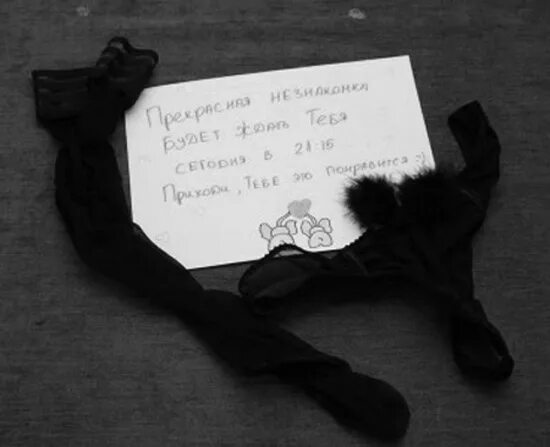 Прекрасная незнакомка
будет ждать Тебя
сегодня в 21:15
Приходи, Тебе это понравится :)